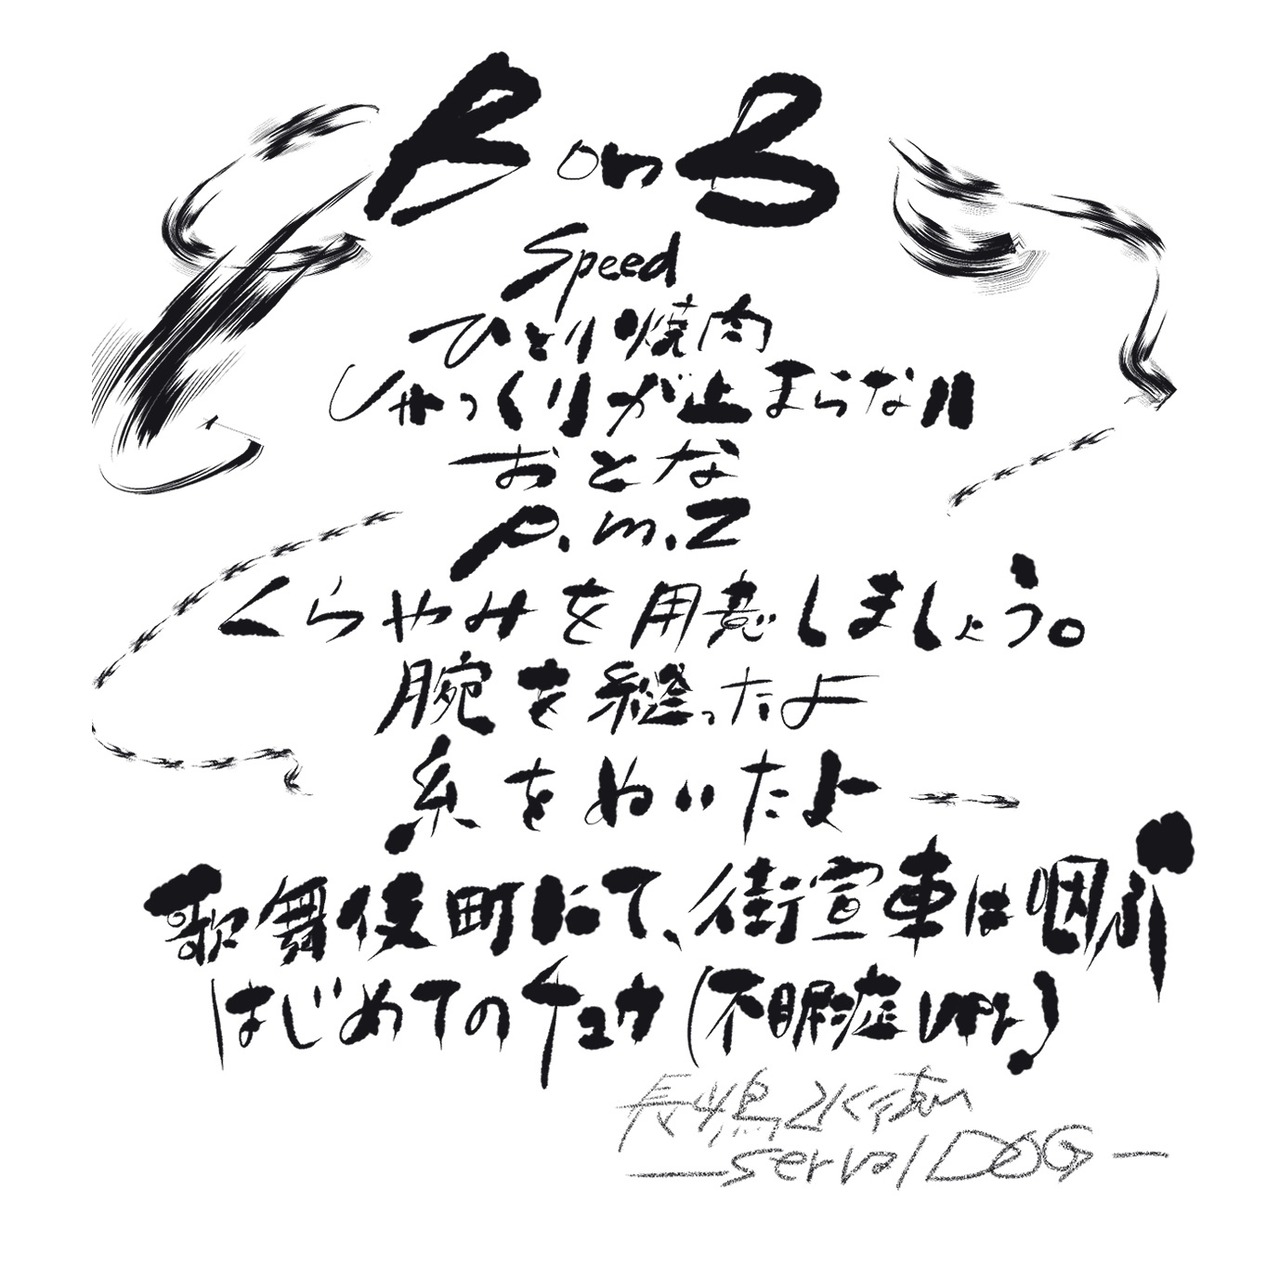 B on B
Speed
ひとり焼肉
しゃっくりが止まらない
おとな
p.m.2
くらやみを用意しましょう。
腕を縫ったよ
糸をぬいたよ
歌舞伎町にて、街宣車は咽ぶ
はじめてのチュウ(不眠症ver.)
長嶋水徳
—serval DOG—